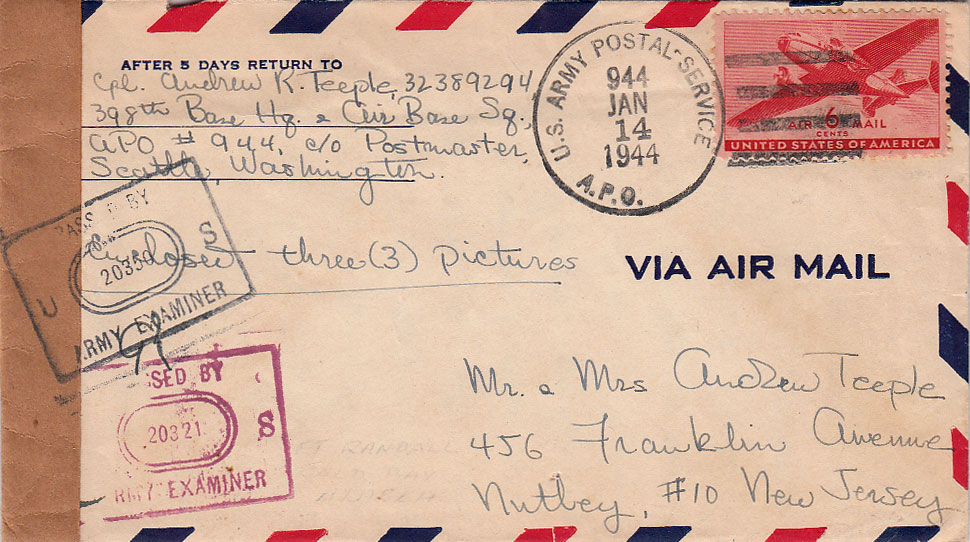 AFTER 5 DAYS RETURN TO
Cpl. Andrew K. Teeple, 32389294
398th Base Hq. & Air Base Sq.,
APO # 944, c/o Postmaster,
Seattle, Washington.
U.S. ARMY POSTAL SERVICE
944
JAN
14
1944
A.P.O.
AIR 6 MAIL
CENTS
UNITED STATES OF AMERICA
PASSED BY
U 20350 S
ARMY EXAMINER
Enclosed three (3) pictures
VIA AIR MAIL
SSED BY
20321 S
RMY EXAMINER
Mr. & Mrs Andrew Teeple
456 Franklin Avenue
Nutley, #10 New Jersey